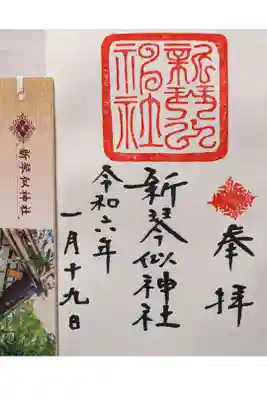 奉拝
新琴似神社
新琴似神社
令和六年
一月十九日
新琴似神社